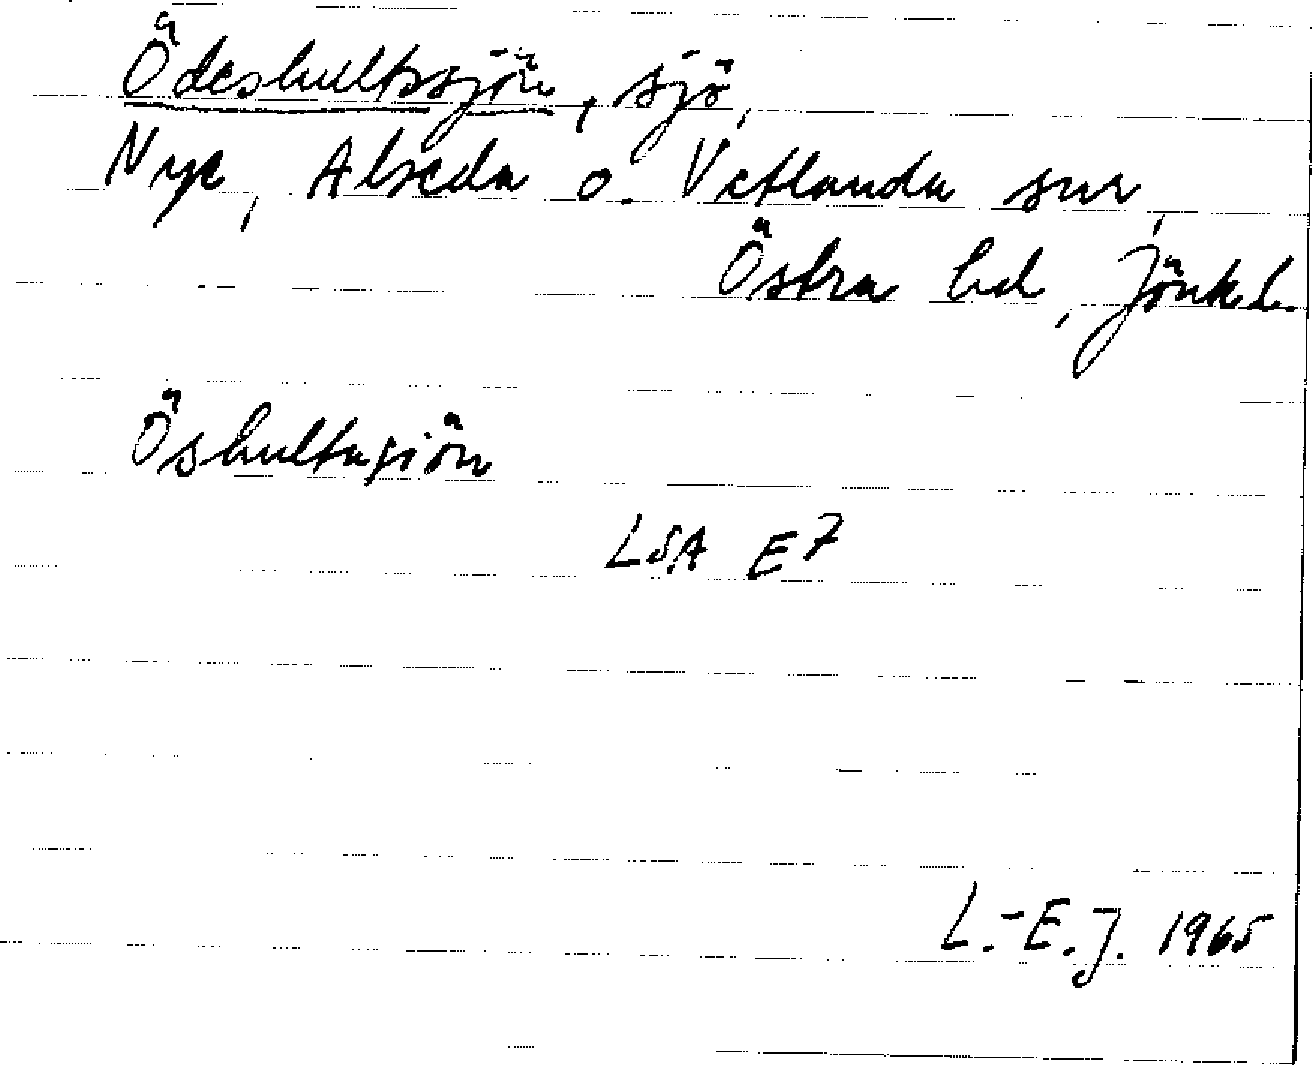 Ödeshultssjön, sjö,
Nye, Alseda o. Vetlanda snr,
Östra hd, Jönk.l.
Öshultasiön
LSA E7
L.-E.J. 1965